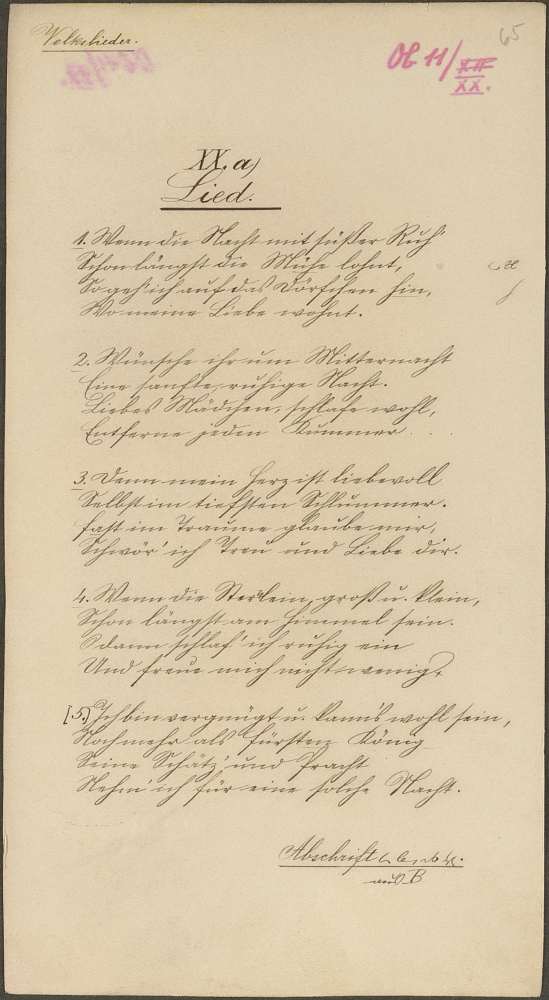 Volkslieder.
65
Ob 11/XII
XX.
XX. a)
Lied.
1. Wenn die Nacht mit süßer Ruh'
Schon längst die Mühe lohnt,
So geh' ich auf das Dörfchen hin,
Wo meine Liebe wohnt.
2. Wünsche ihr um Mitternacht
Eine sanfte, ruhige Nacht.
Liebes Mädchen, schlafe wohl,
Entferne jeden Kummer...
3. Denn mein Herz ist liebevoll
Selbst im tiefsten Schlummer.
Fast im Traume glaube mir,
Schwör' ich Treu und Liebe dir.
4. Wenn die Sterlein, groß u. klein,
Schon längst am Himmel sein.
O dann schlaf' ich ruhig ein
Und freue mich nicht wenig,
[5.] Ich bin vergnügt u. kann's wohl sein,
Noch mehr als Fürsten König
Seine Schätz' und Pracht
Nehm' ich für eine solche Nacht.
Abschrift
aus B